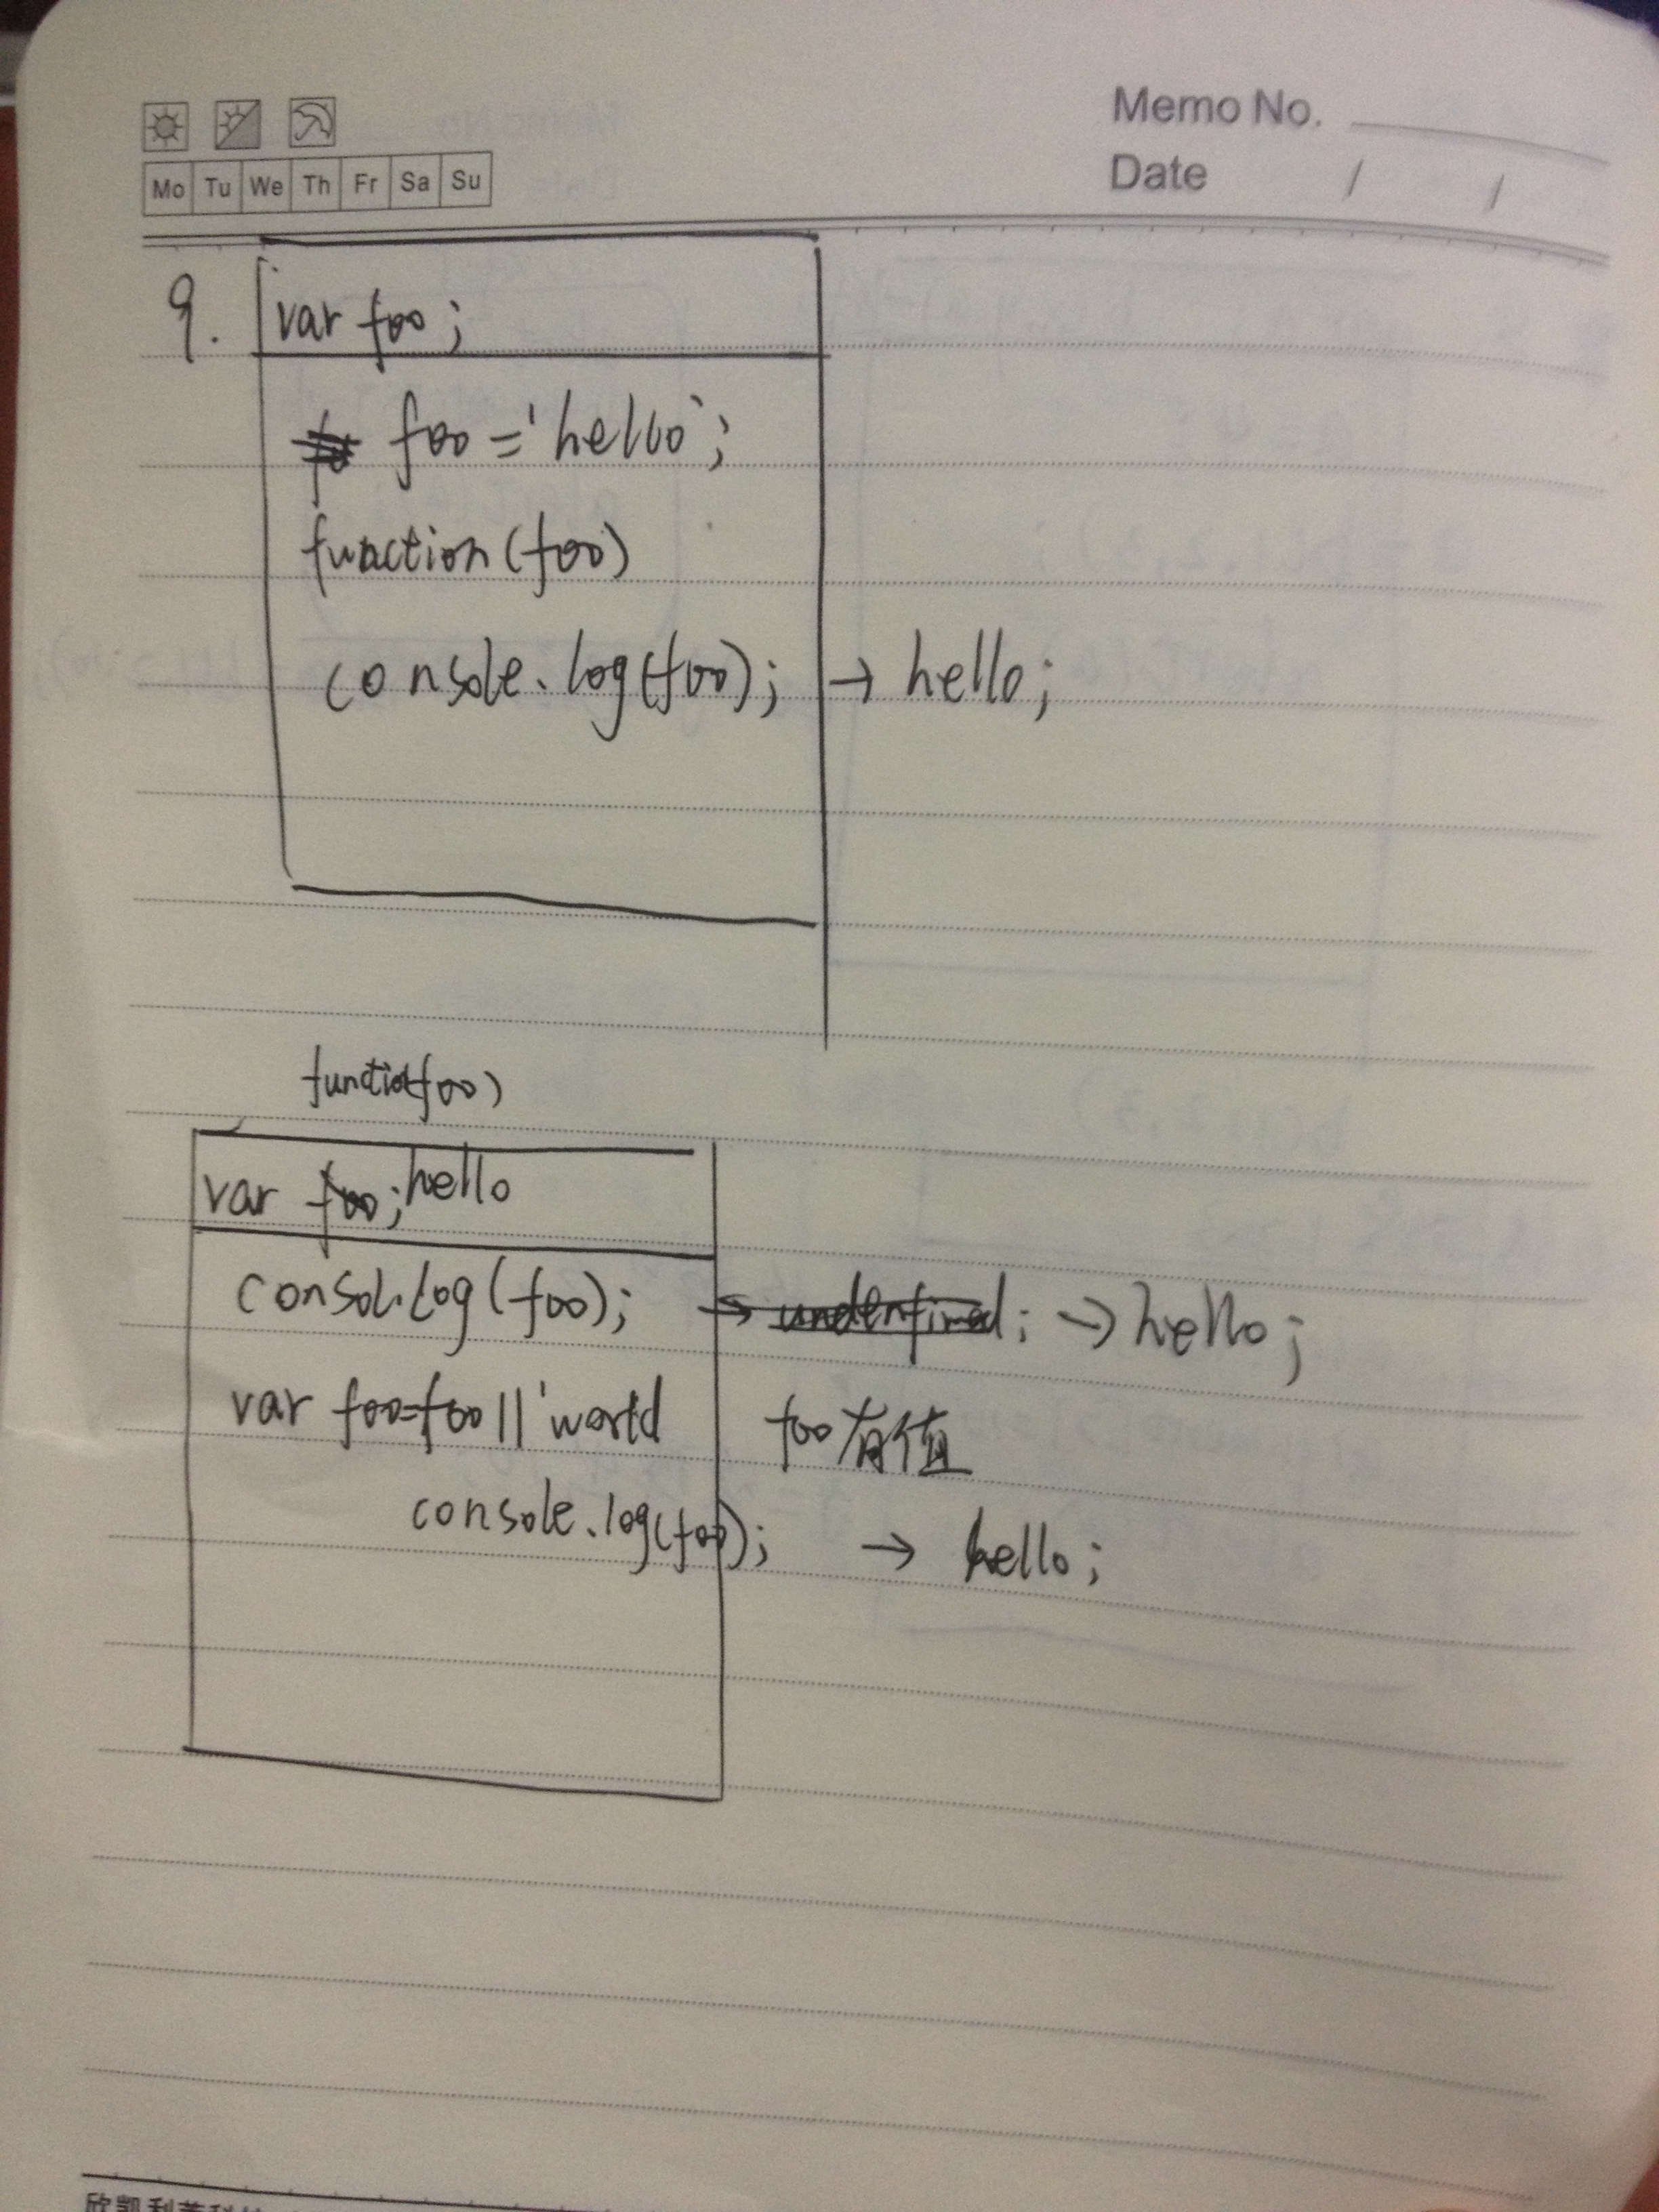 Memo No.
Mo Tu We Th Fr Sa Su
Date / /
9. var foo;
foo = 'hello';
function(foo)
console.log(foo); → hello;
function(foo)
var foo; hello
consol.log(foo); → undenfined; → hello;
var foo=foo || 'world foo有值
console.log(foo); → hello;